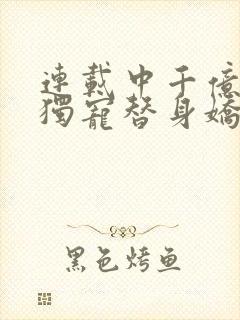 連載中千億
獨寵替身嬌
黑色烤鱼